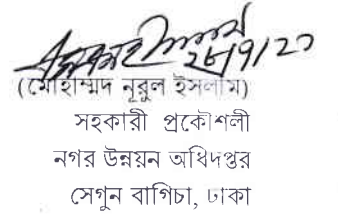 ২৮/৭/২০
(মোহাম্মদ নূরুল ইসলাম)
সহকারী প্রকৌশলী
নগর উন্নয়ন অধিদপ্তর
সেগুন বাগিচা, ঢাকা